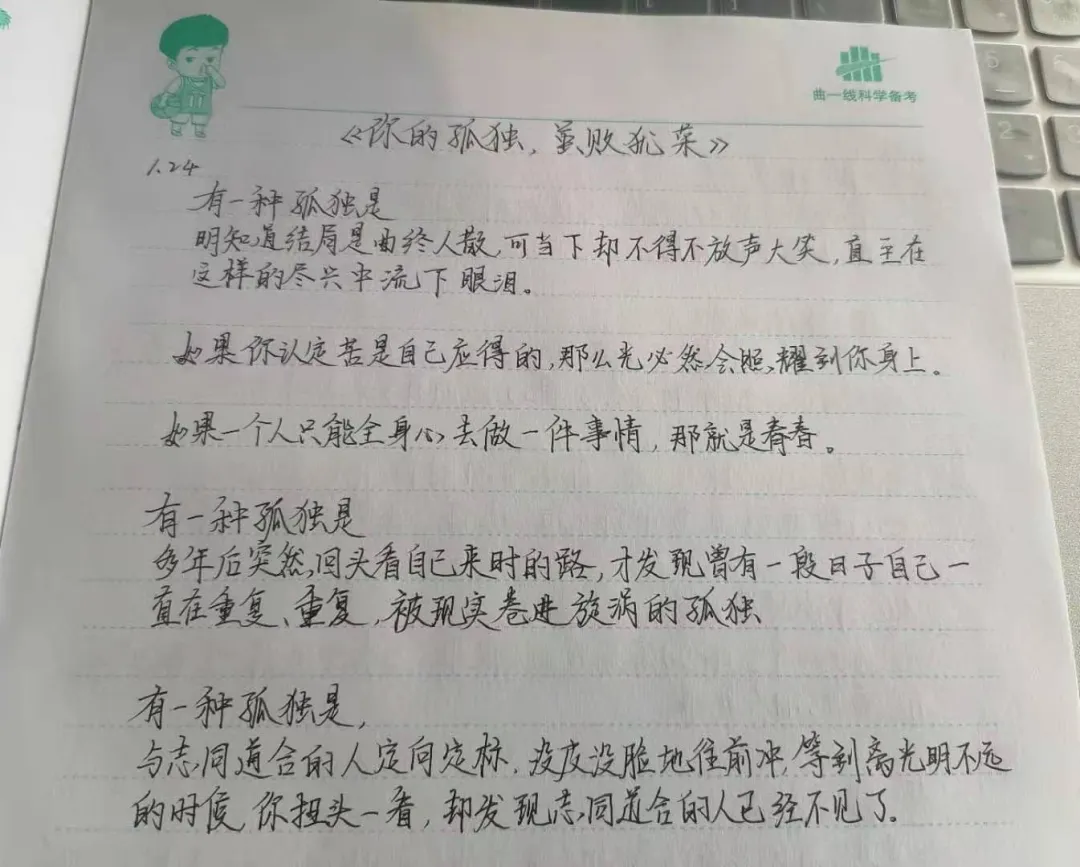 曲一线科学备考
《你的孤独,虽败犹荣》
1.24
有一种孤独是
明知道结局是曲终人散,可当下却不得不放声大笑,直至在
这样的尽兴中流下眼泪。
如果你认定苦是自己应得的,那么光必然会照耀到你身上。
如果一个人只能全身心去做一件事情,那就是青春。
有一种孤独是
多年后突然回头看自己来时的路,才发现曾有一段日子自己一
直在重复、重复,被现实卷进旋涡的孤独
有一种孤独是,
与志同道合的人定向定标,没皮没脸地往前冲,等到离光明不远
的时候,你扭头一看,却发现志同道合的人已经不见了.